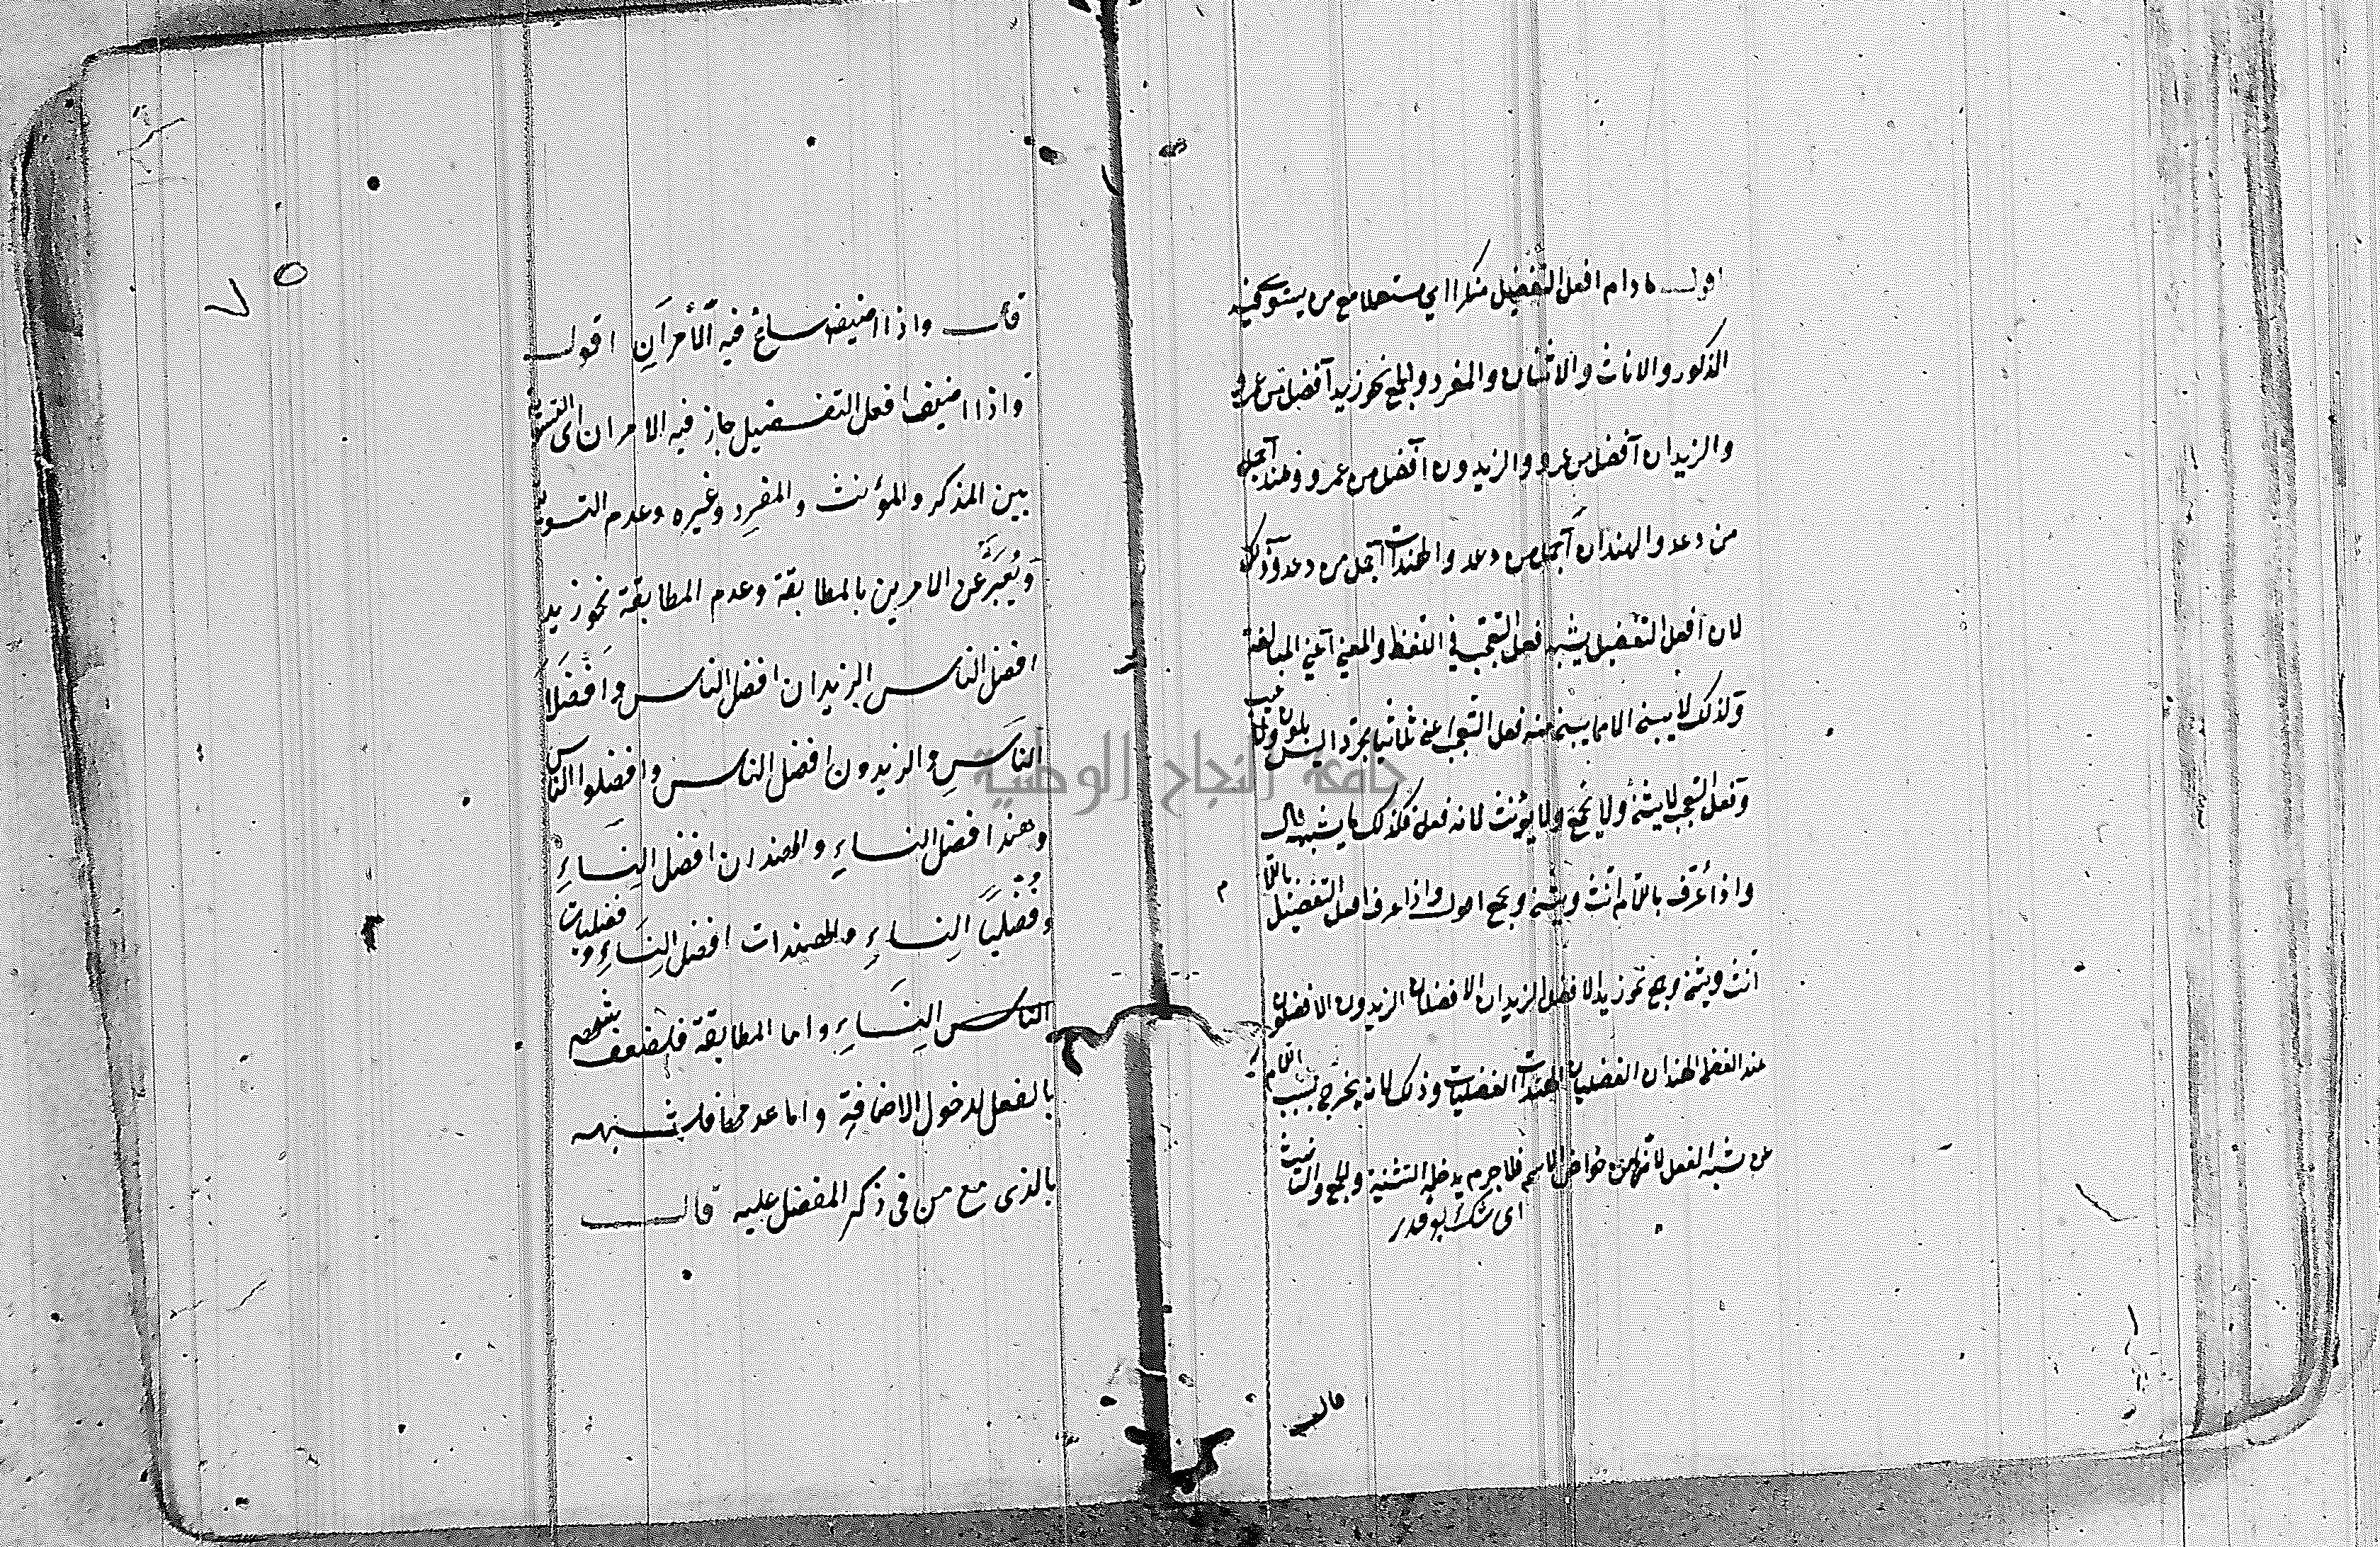 اقول مادام افعل التفضيل منكرا اي مستعملا مع من يستوي فيه
الذكور والاناث والاثنان والمفرد والجمع نحو زيد افضل من عمرو
والزيدان افضل من عمرو والزيدون افضل من عمرو وهند اجمل
من دعد والهندان اجمل من دعد والهندات اجمل من دعد وذلك
لان افعل التفضيل يشبه فعل التعجب في اللفظ والمعني اعني المبالغة
ولذلك لا يبني الا مما يبني منه فعل التعجب اعني ثلاثيا مجرد اليس بلون ولا عيب
وفعل التعجب لا يثني ولا يجمع ولا يؤنث لانه فعل فكذلك ما يشبهه قال
واذا عرف باللام انث ويثني ويجمع اقول واذا عرف افعل التفضيل باللام
انث ويثني ويجمع نحو زيد الافضل الزيدان الافضلان الزيدون الافضلون
هند الفضلي الهندان الفضليان الهندات الفضليات وذلك لانه يخرج بسبب اللام
عن شبه الفعل لانها من خواص الاسم فلا جرم يدخله التثنية والجمع والتانيث
قال
قال واذا اضيف ساغ فيه الأمران اقول
واذا اضيف افعل التفضيل جاز فيه الامران اي التسوية
بين المذكر والمؤنث والمفرد وغيره وعدم التسوية
ويعبر عن الامرين بالمطابقة وعدم المطابقة نحو زيد
افضل الناس الزيدان افضل الناس وافضلا
الناس والزيدون افضل الناس وافضلوا الناس
وهند افضل النساء والهندان افضل النساء
وفضليا النساء والهندات افضل النساء وفضليات
الناس النساء واما المطابقة فلضعف شبهه
بالفعل لدخول الاضافة واما عدمها فلشبهه
بالذي مع من في ذكر المفضل عليه قال
٧٥
جامعة النجاح الوطنية